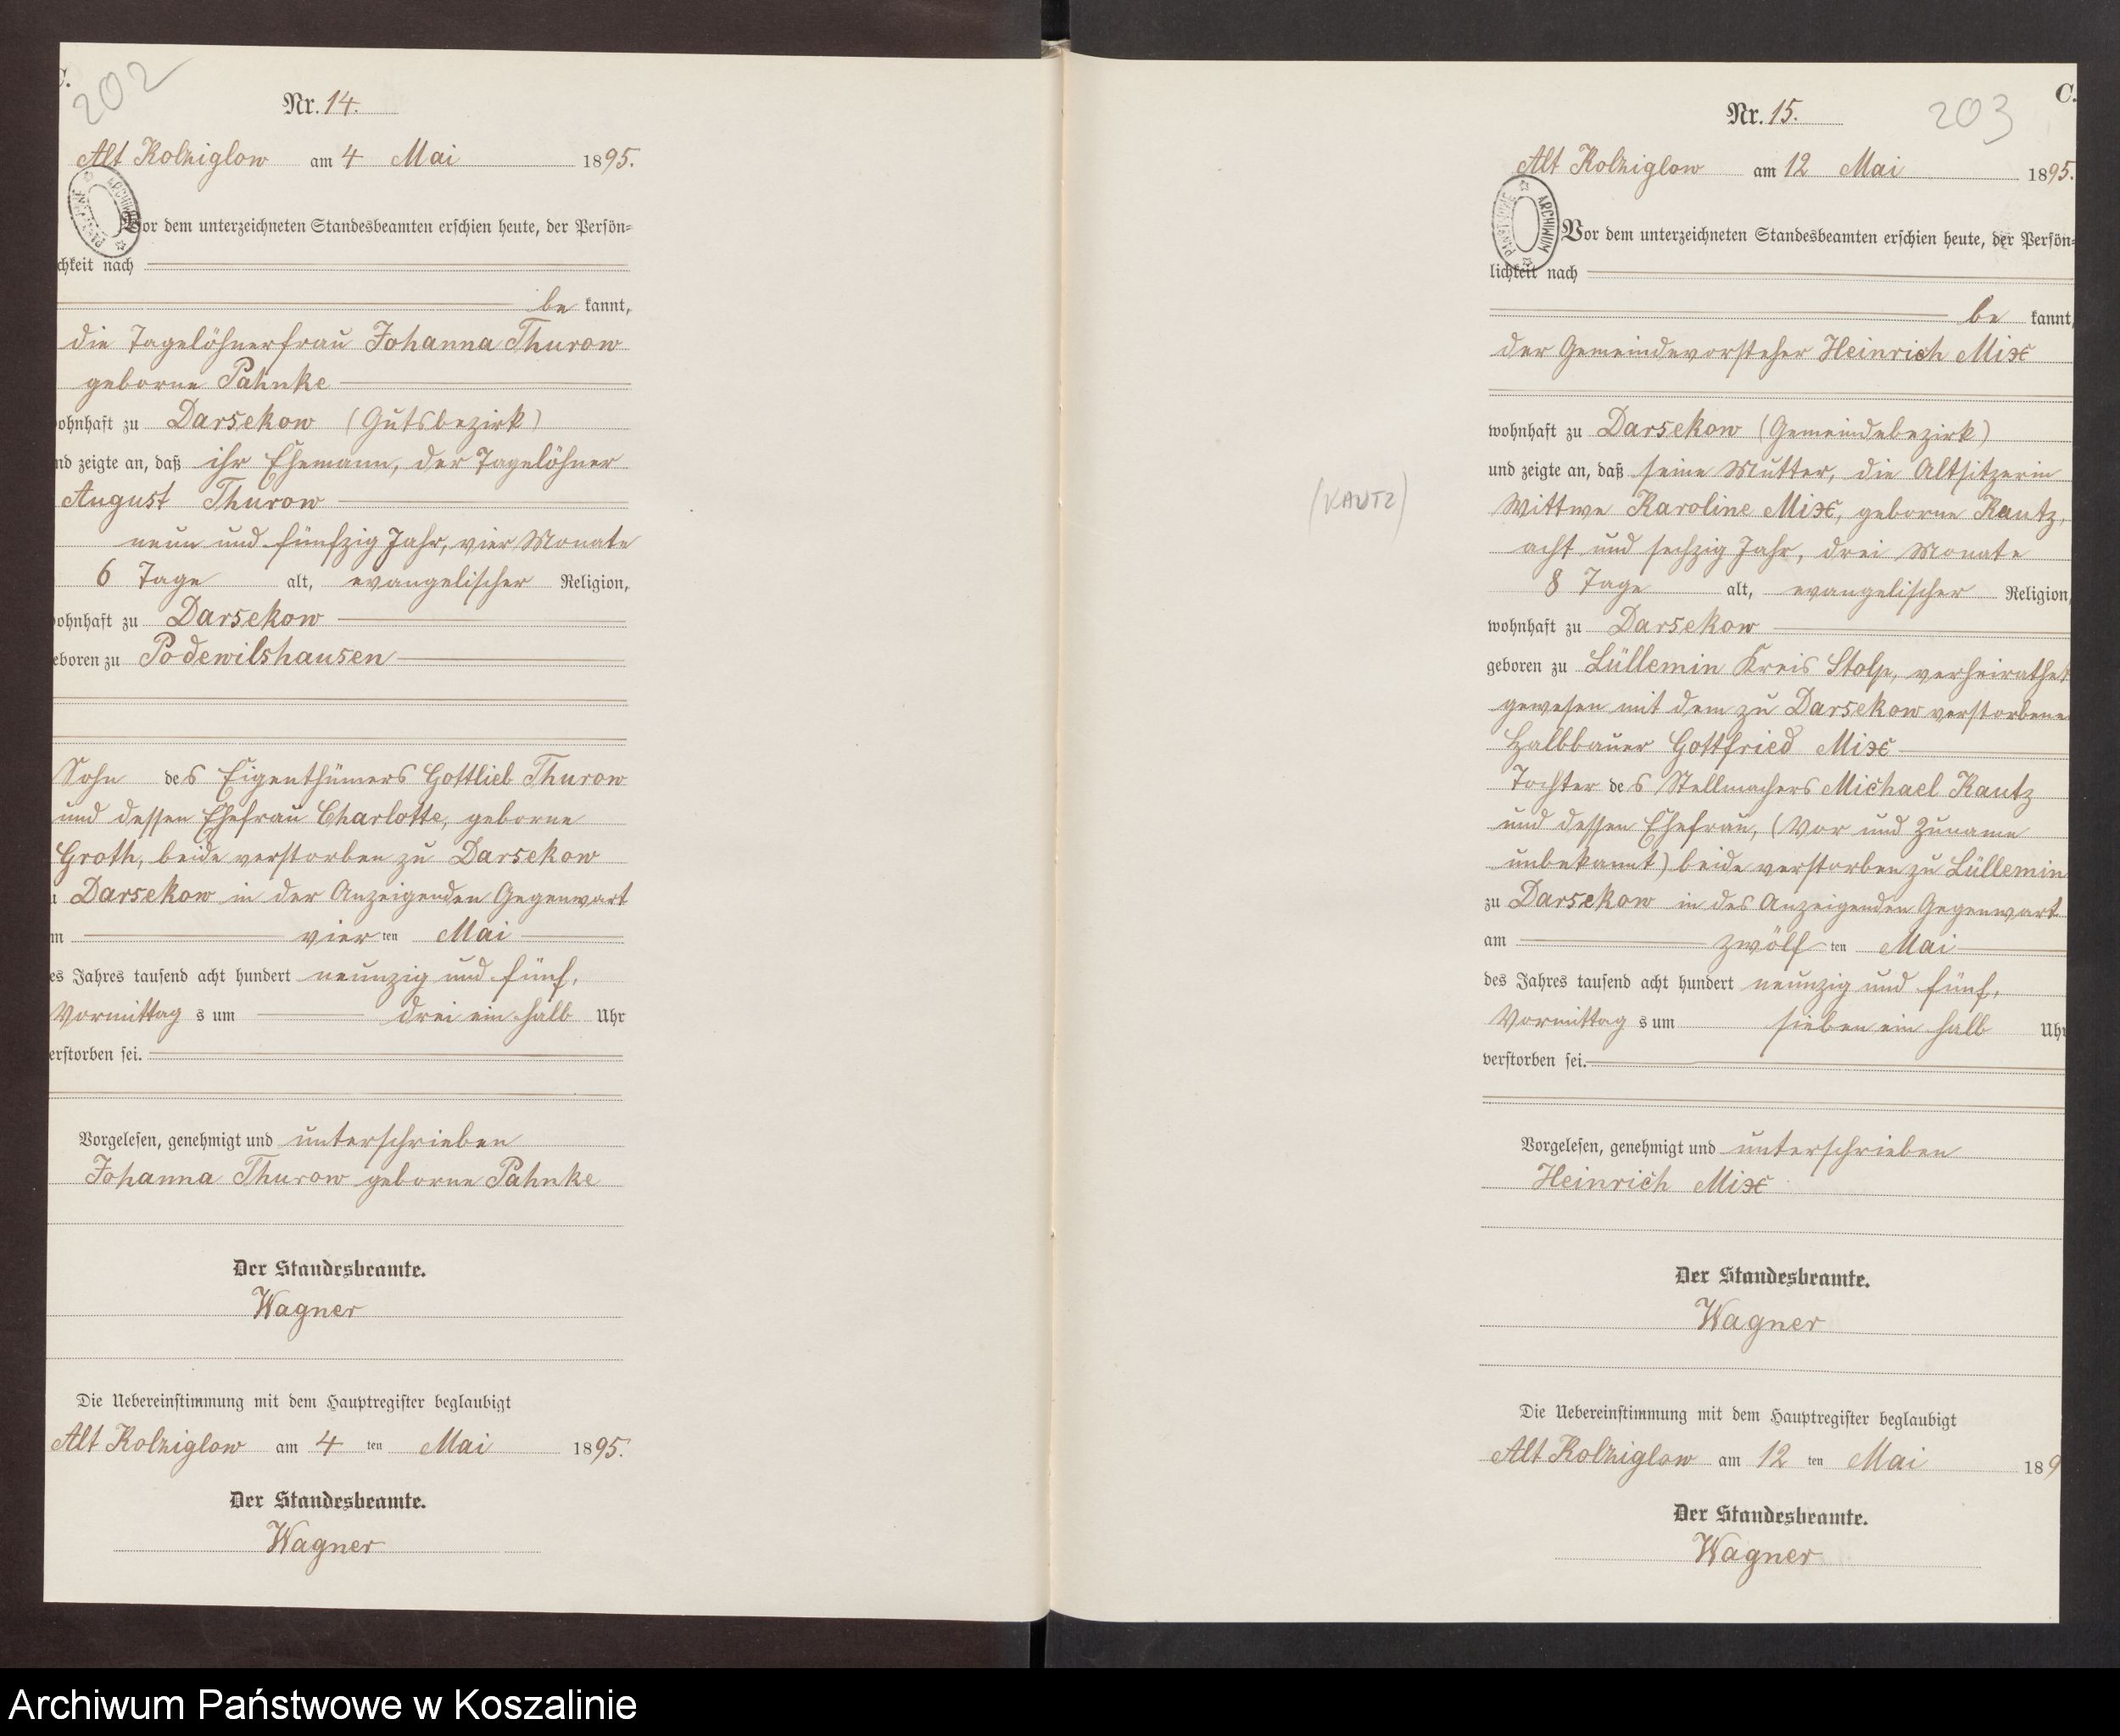 C.
202
Nr. 14.
Alt Kolziglow am 4 Mai 1895.
Vor dem unterzeichneten Standesbeamten erschien heute, der Persön-
chkeit nach
be kannt,
die Tagelöhnerfrau Johanna Thurow
geborne Pahnke
ohnhaft zu Darsekow (Gutsbezirk)
nd zeigte an, daß ihr Ehemann, der Tagelöhner
August Thurow
neun und fünfzig Jahr, vier Monate
6 Tage alt, evangelischer Religion,
ohnhaft zu Darsekow
eboren zu Podewilshausen
Sohn des Eigenthümers Gottlieb Thurow
und dessen Ehefrau Charlotte, geborne
Groth, beide verstorben zu Darsekow
u Darsekow in der Anzeigenden Gegenwart
m vier ten Mai
es Jahres tausend acht hundert neunzig und fünf,
Vormittag s um drei ein halb Uhr
erstorben sei.
Vorgelesen, genehmigt und unterschrieben
Johanna Thurow geborne Pahnke
Der Standesbeamte.
Wagner
Die Uebereinstimmung mit dem Hauptregister beglaubigt
Alt Kolziglow am 4 ten Mai 1895.
Der Standesbeamte.
Wagner
(KAUTZ)
C.
203
Nr. 15.
Alt Kolziglow am 12 Mai 1895.
PAŃSTWOWE ARCHIWUM
Vor dem unterzeichneten Standesbeamten erschien heute, der Persön-
lichkeit nach
be kannt,
der Gemeindevorsteher Heinrich Mix
wohnhaft zu Darsekow (Gemeindebezirk)
und zeigte an, daß seine Mutter, die Altsitzerin
Wittwe Karoline Mix, geborne Kautz,
acht und sechzig Jahr, drei Monate
8 Tage alt, evangelischer Religion,
wohnhaft zu Darsekow
geboren zu Lüllemin Kreis Stolp, verheirathet
gewesen mit dem zu Darsekow verstorbene
Halbbauer Gottfried Mix
Tochter des Stellmachers Michael Kautz
und dessen Ehefrau, (Vor und Zuname
unbekannt) beide verstorben zu Lüllemin
zu Darsekow in des Anzeigenden Gegenwart
am zwölf ten Mai
des Jahres tausend acht hundert neunzig und fünf,
Vormittag s um sieben ein halb Uhr
verstorben sei.
Vorgelesen, genehmigt und unterschrieben
Heinrich Mix
Der Standesbeamte.
Wagner
Die Uebereinstimmung mit dem Hauptregister beglaubigt
Alt Kolziglow am 12 ten Mai 189
Der Standesbeamte.
Wagner
Archiwum Państwowe w Koszalinie